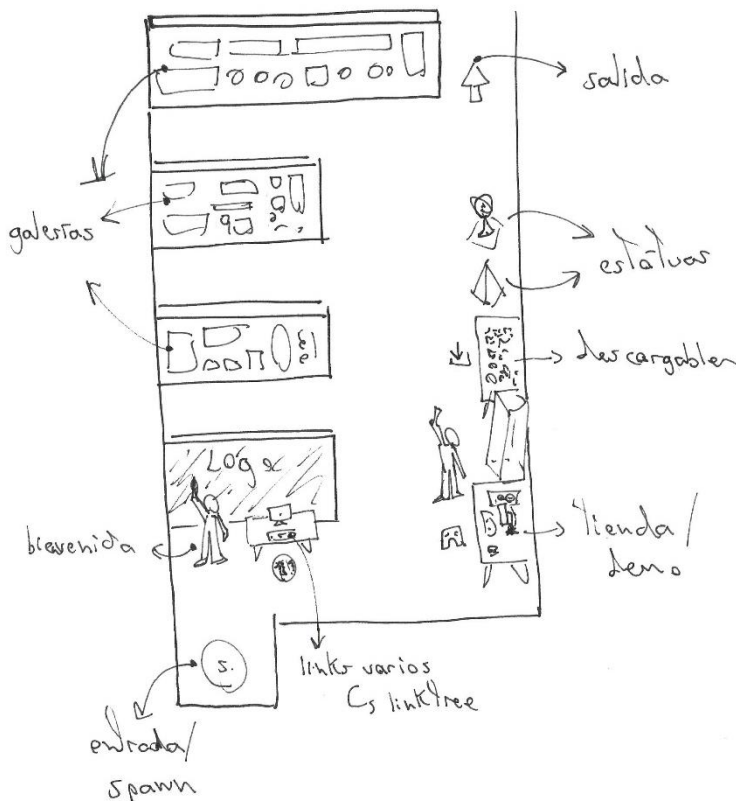 salida
galerías
estátuas
descargables
LOGO
bienvenida
tienda/
demo
S.
links varios
↳ linktree
entrada/
spawn